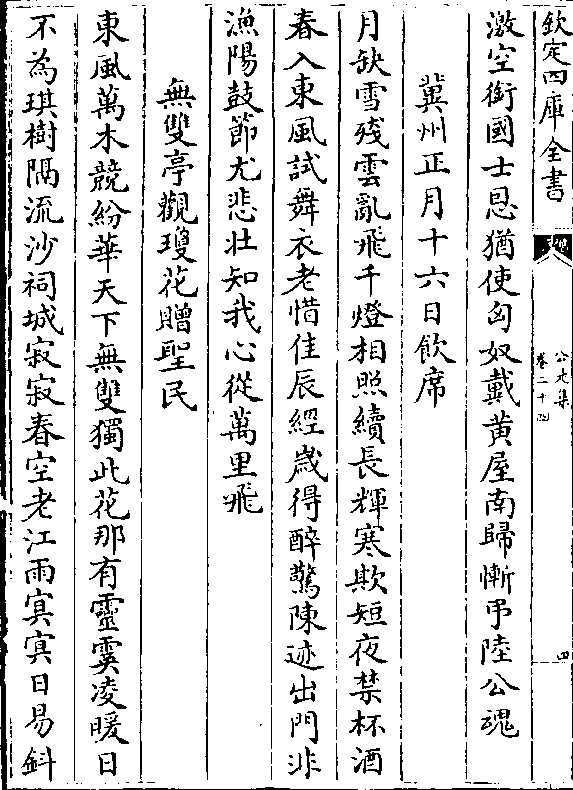 欽定四庫全書
公是集
卷二十四
四
激空銜國士恩猶使匈奴戴黄屋南歸慚弔陸公魂
冀州正月十六日飲席
月缺雪殘雲亂飛千燈相照續長輝寒欺短夜禁杯酒
春入東風試舞衣老惜佳辰經嵗得醉驚陳迹出門非
漁陽鼓節尤悲壯知我心從萬里飛
無雙亭觀瓊花贈聖民
東風萬木競紛華天下無雙獨此花那有靈雰凌暖日
不為琪樹隔流沙祠城寂寂春空老江雨寞寞日易斜